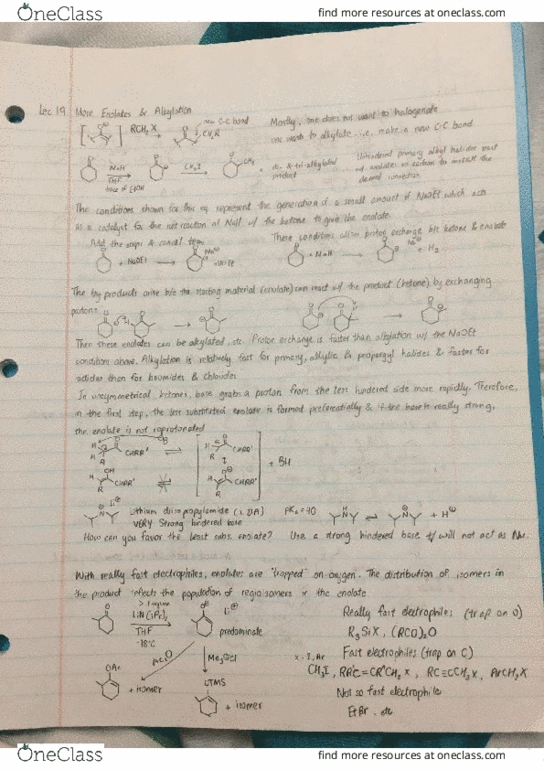 OneClass
find more resources at oneclass.com
Lec 19 More Enolates & Alkylation
new C-C bond
RCH2X
CH2R
Mostly, one does not want to halogenate
one wants to alkylate i.e. make a new C-C bond
NaH
CH3I
trace of EtOH
di- & tri-alkylated product
The conditions shown for this rxn represent the generation of a small amount of NaOEt which acts
as a catalyst for the net reaction of NaH w/ the ketone to give the enolate.
Add the steps & cancel terms
These conditions allow proton exchange b/t ketone & enolate
+ NaOEt
+ NaH
+ H2
The by products arise b/c the starting material (enolate) can react w/ the product (ketone) by exchanging
protons.
Then these enolates can be alkylated, etc. Proton exchange is faster than alkylation w/ the NaOEt
conditions above. Alkylation is relatively fast for primary, allylic & propargyl halides & faster for
iodides than for bromides & chlorides
In unsymmetrical ketones, base grabs a proton from the less hindered side more rapidly. Therefore,
in the first step, the less substituted enolate is formed preferentially & if the base is really strong,
the enolate is not reprotonated
CHRR'
CHRR'
+ BH
CHRR'
CHRR'
Lithium diisopropylamide (LDA)
VERY strong hindered base
pKa = 40
+ H
How can you favor the least subs. enolate? Use a strong hindered base
will not act as Nu.
With really fast electrophiles, enolates are "trapped" on oxygen. The distribution of isomers in
the product reflects the population of regioisomers in the enolate
> 1 equiv
LiN(iPr)2
THF
-78°C
predominate
Really fast electrophiles (trap on O)
R3SiX, (RCO)2O
Ac2O
Me3SiCl
Fast electrophiles (trap on C)
CH3I,
RC≡CCH2X, ArCH2X
OAc
+ isomer
OTMS
+ isomer
Not so fast electrophile
EtBr, etc
OneClass
find more resources at oneclass.com